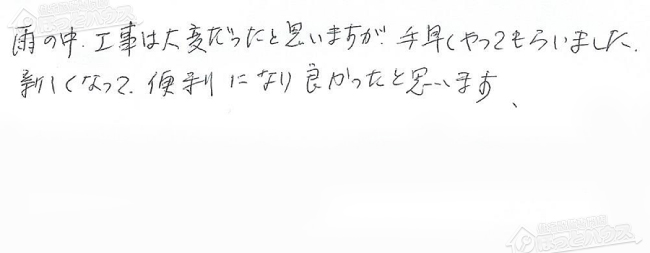 雨の中、工事は大変だったと思いますが、手早くやってもらいました.
新しくなって、便利になり良かったと思います、